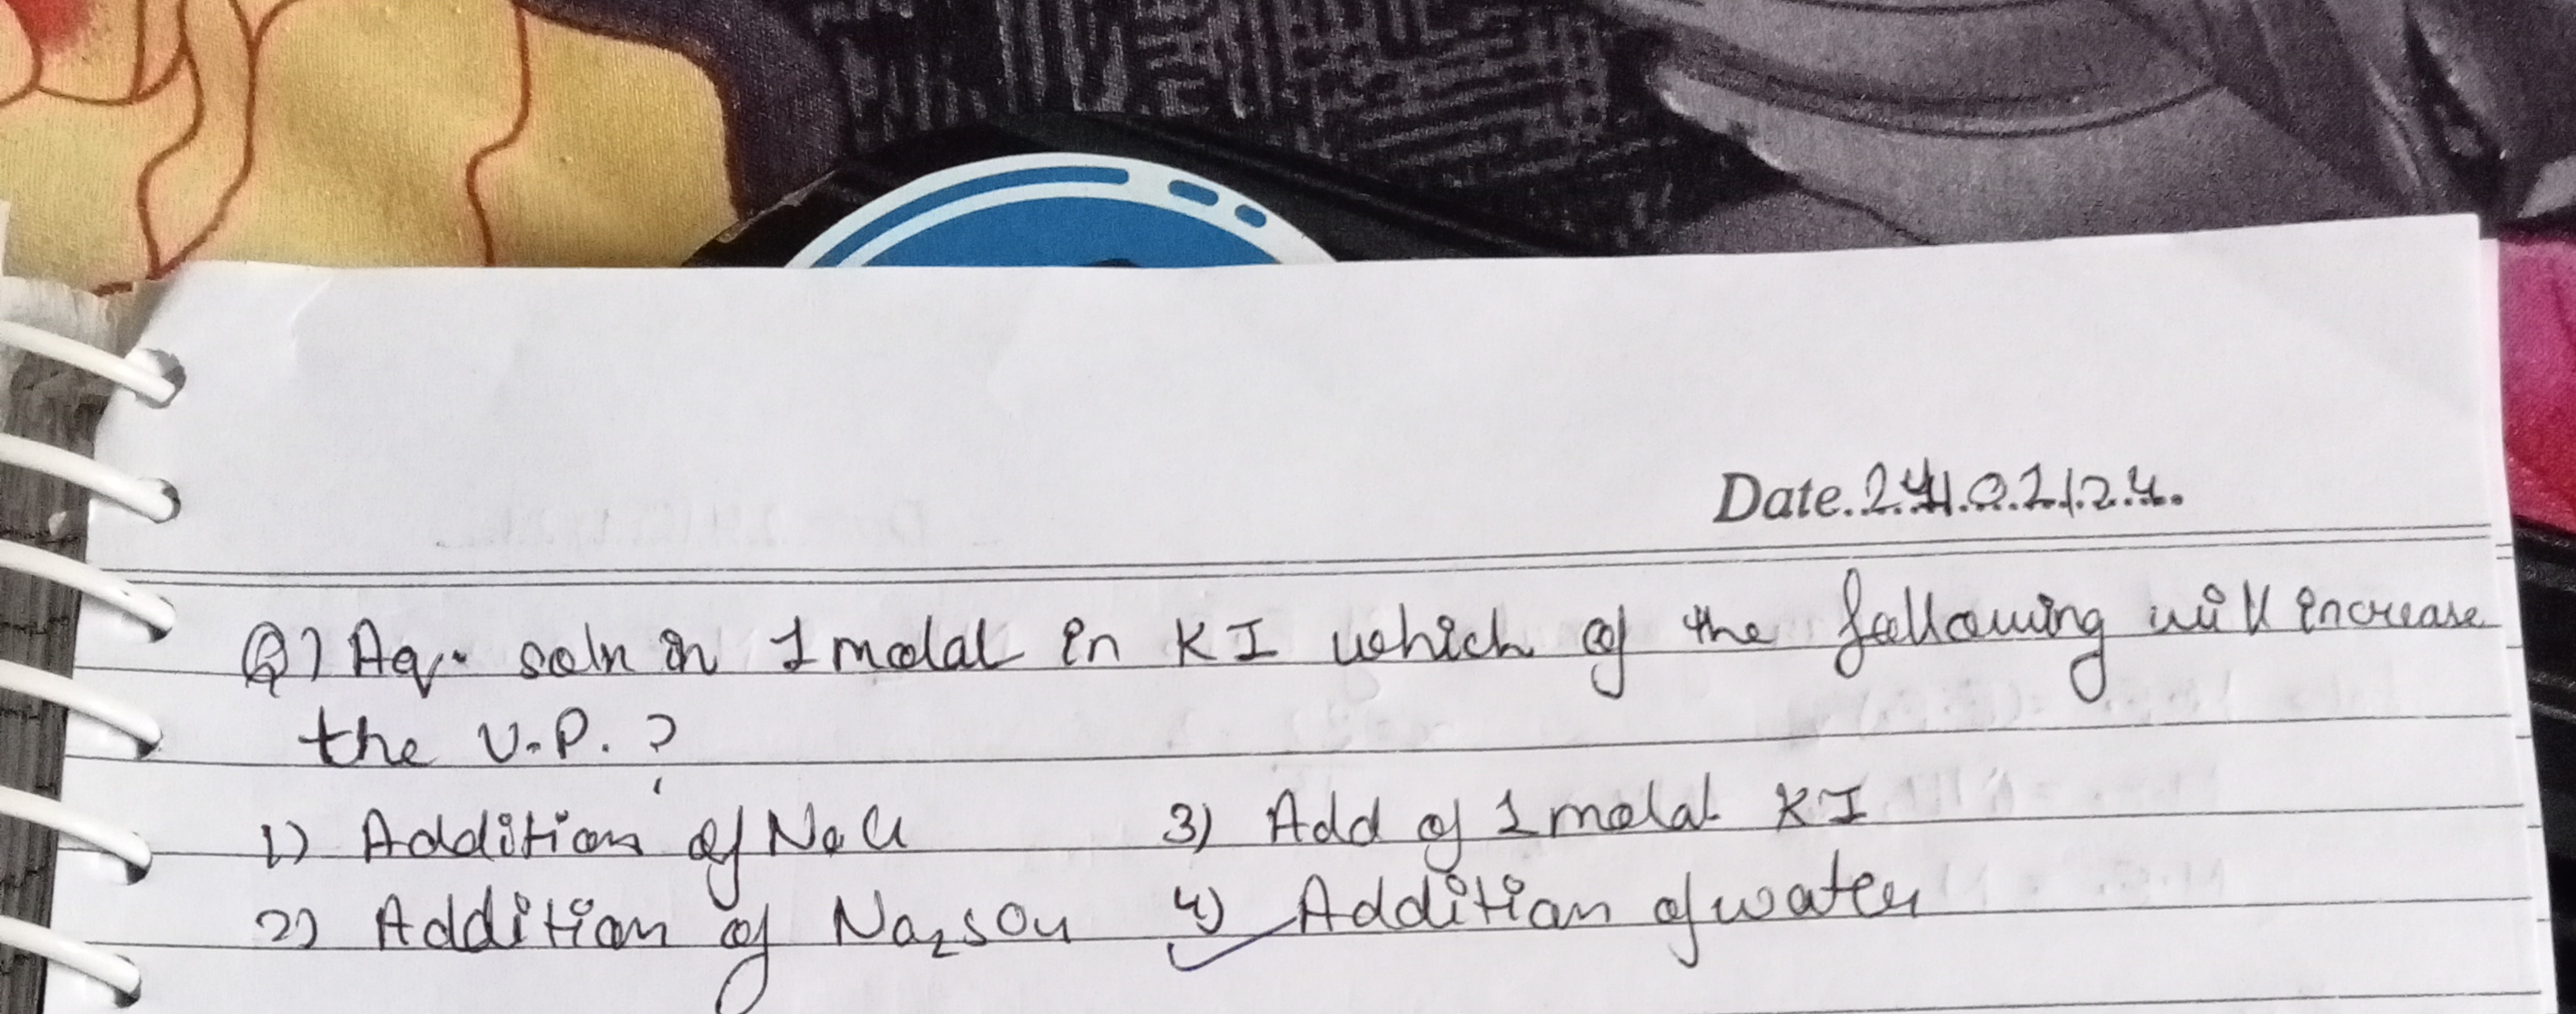 Date.24.02.24.
Q) Aq. soln in 1 molal in KI which of the following will increase
the V.P. ?
1) Addition of NaCl 3) Add of 1 molal KI
2) Addition of Na2SO4 4) Addition of water